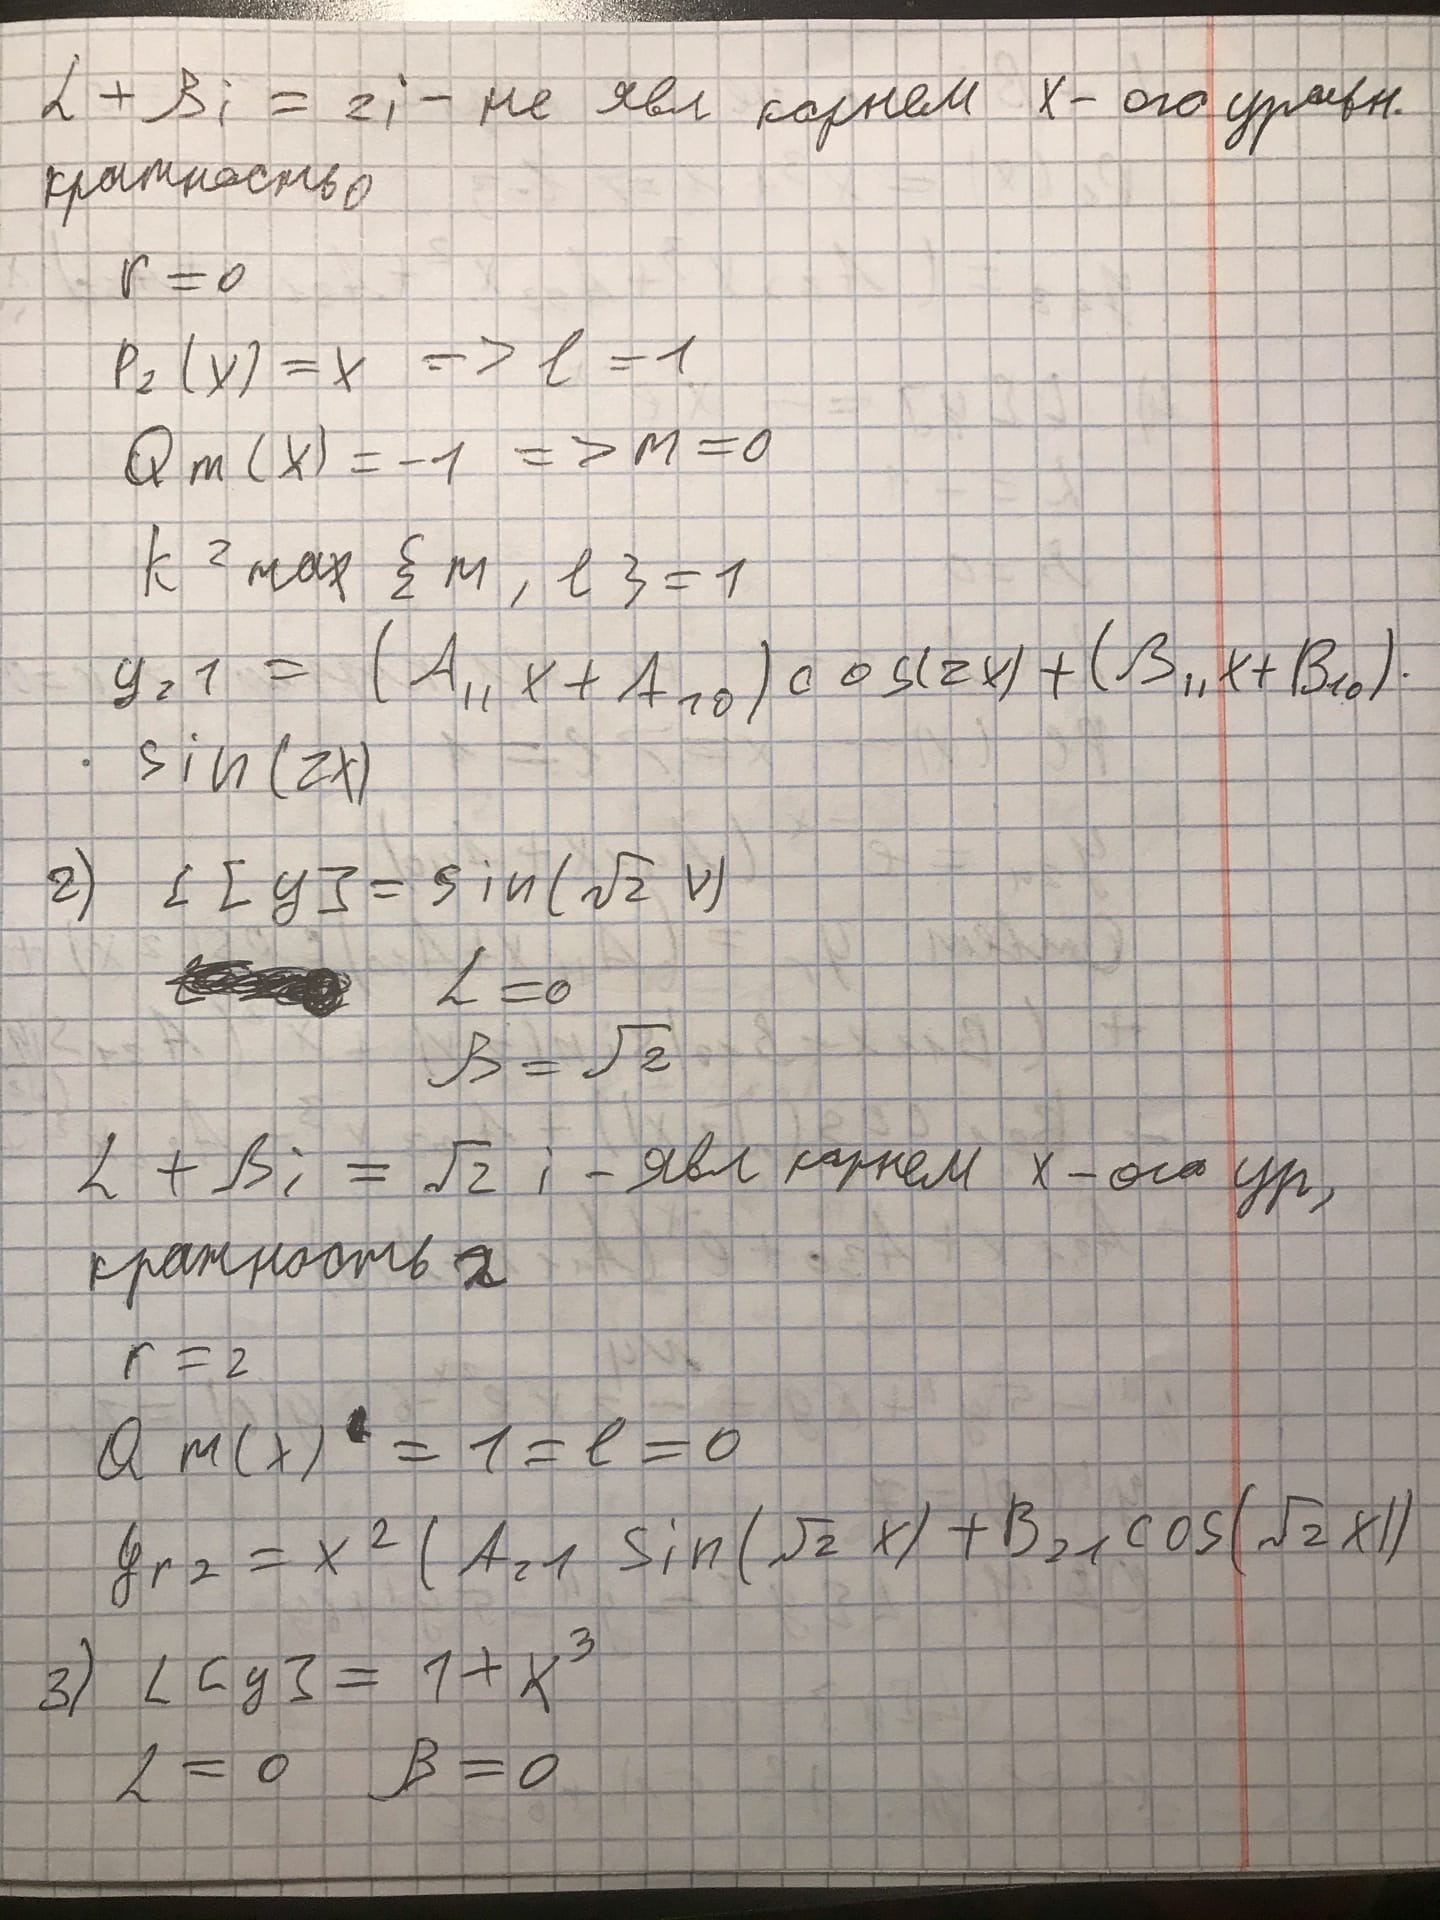 α + βi = 2i - не явл корнем х-ого уравн.
кратность 0
r = 0
P₂(x) = x => l = 1
Qm(x) = -1 => m = 0
k = max {m, l} = 1
y₂1 = (A₁₁x + A₁₀) cos(2x) + (B₁₁x + B₁₀) ·
· sin(2x)
2) L[y] = sin(√2 x)
α = 0
β = √2
α + βi = √2 i - явл корнем х-ого ур,
кратность 2
r = 2
Qm(x) = 1 = l = 0
yr₂ = x² (A₂₁ sin(√2 x) + B₂₁ cos(√2 x))
3) L[y] = 1 + x³
α = 0 β = 0